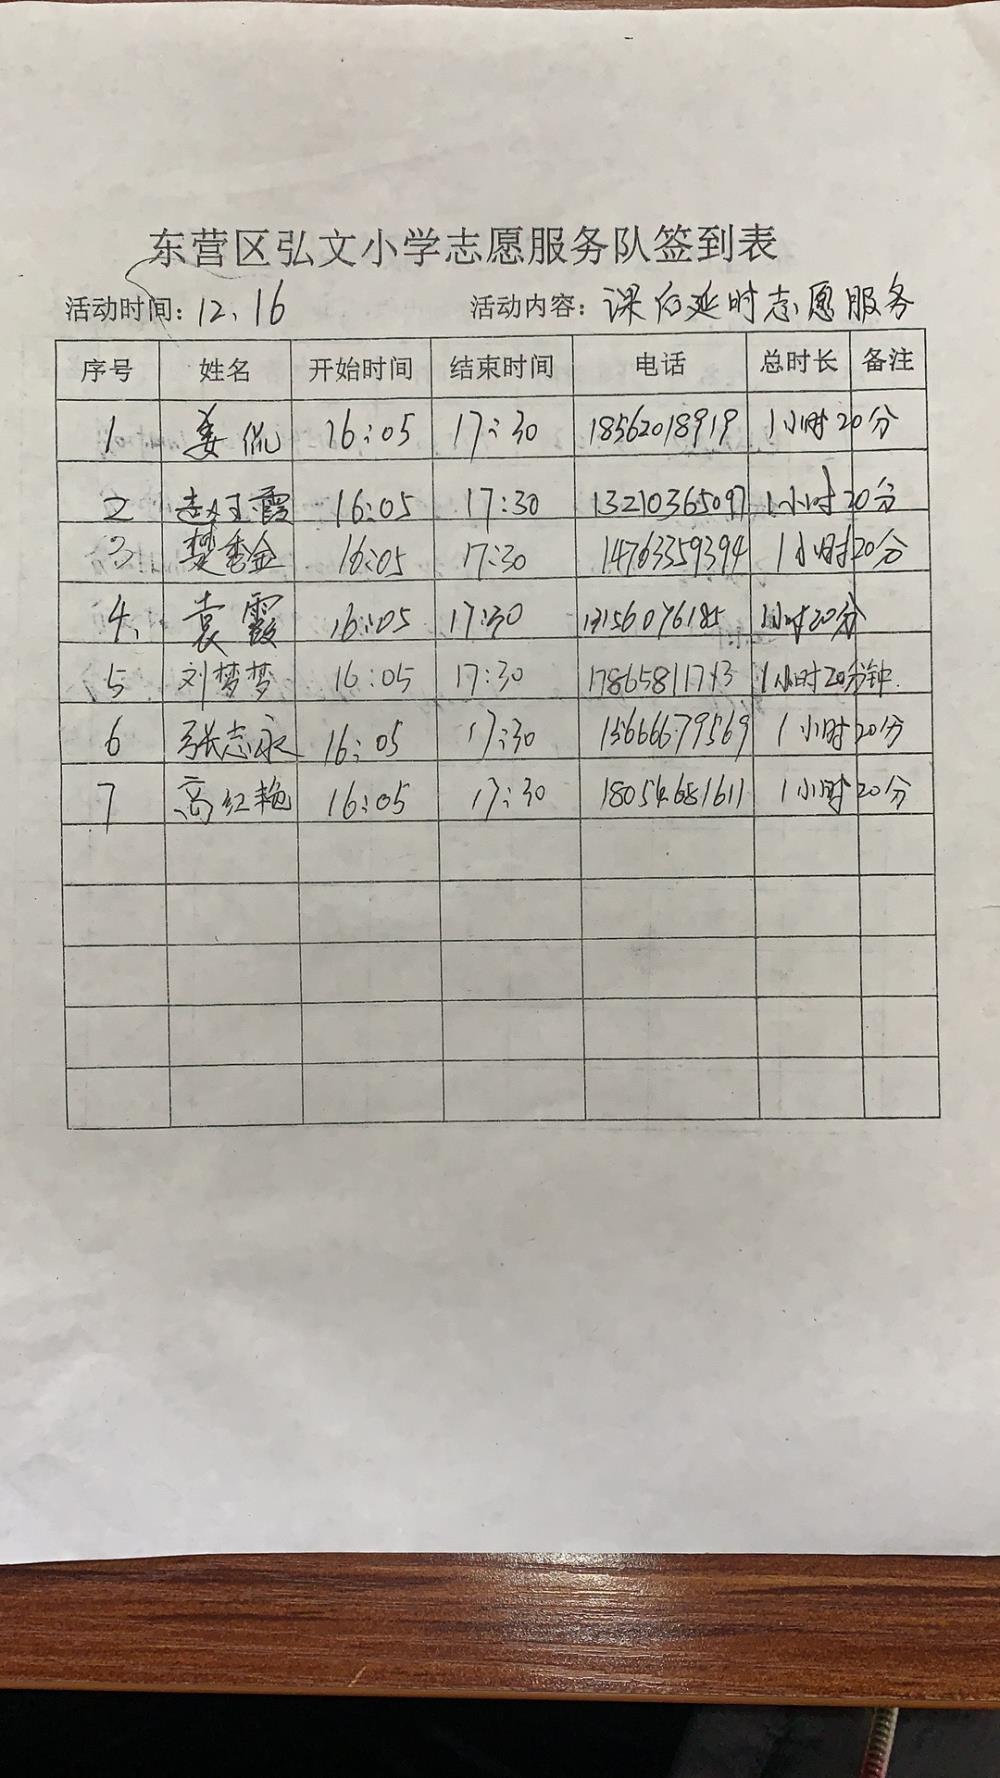 东营区弘文小学志愿服务队签到表
活动时间：12、16 活动内容：课后延时志愿服务
序号 姓名 开始时间 结束时间 电话 总时长 备注
1 姜侃 16:05 17:30 18562018919 1小时20分
2 赵玉霞 16:05 17:30 13210365097 1小时20分
3 楚秀金 16:05 17:30 14763359394 1小时20分
4、 袁霞 16:05 17:30 13156076185 1小时20分
5 刘梦梦 16:05 17:30 1小时20分钟.
6 张志永 16:05 17:30 13666679569 1小时20分
7 高红艳 16:05 17:30 18054681611 1小时20分